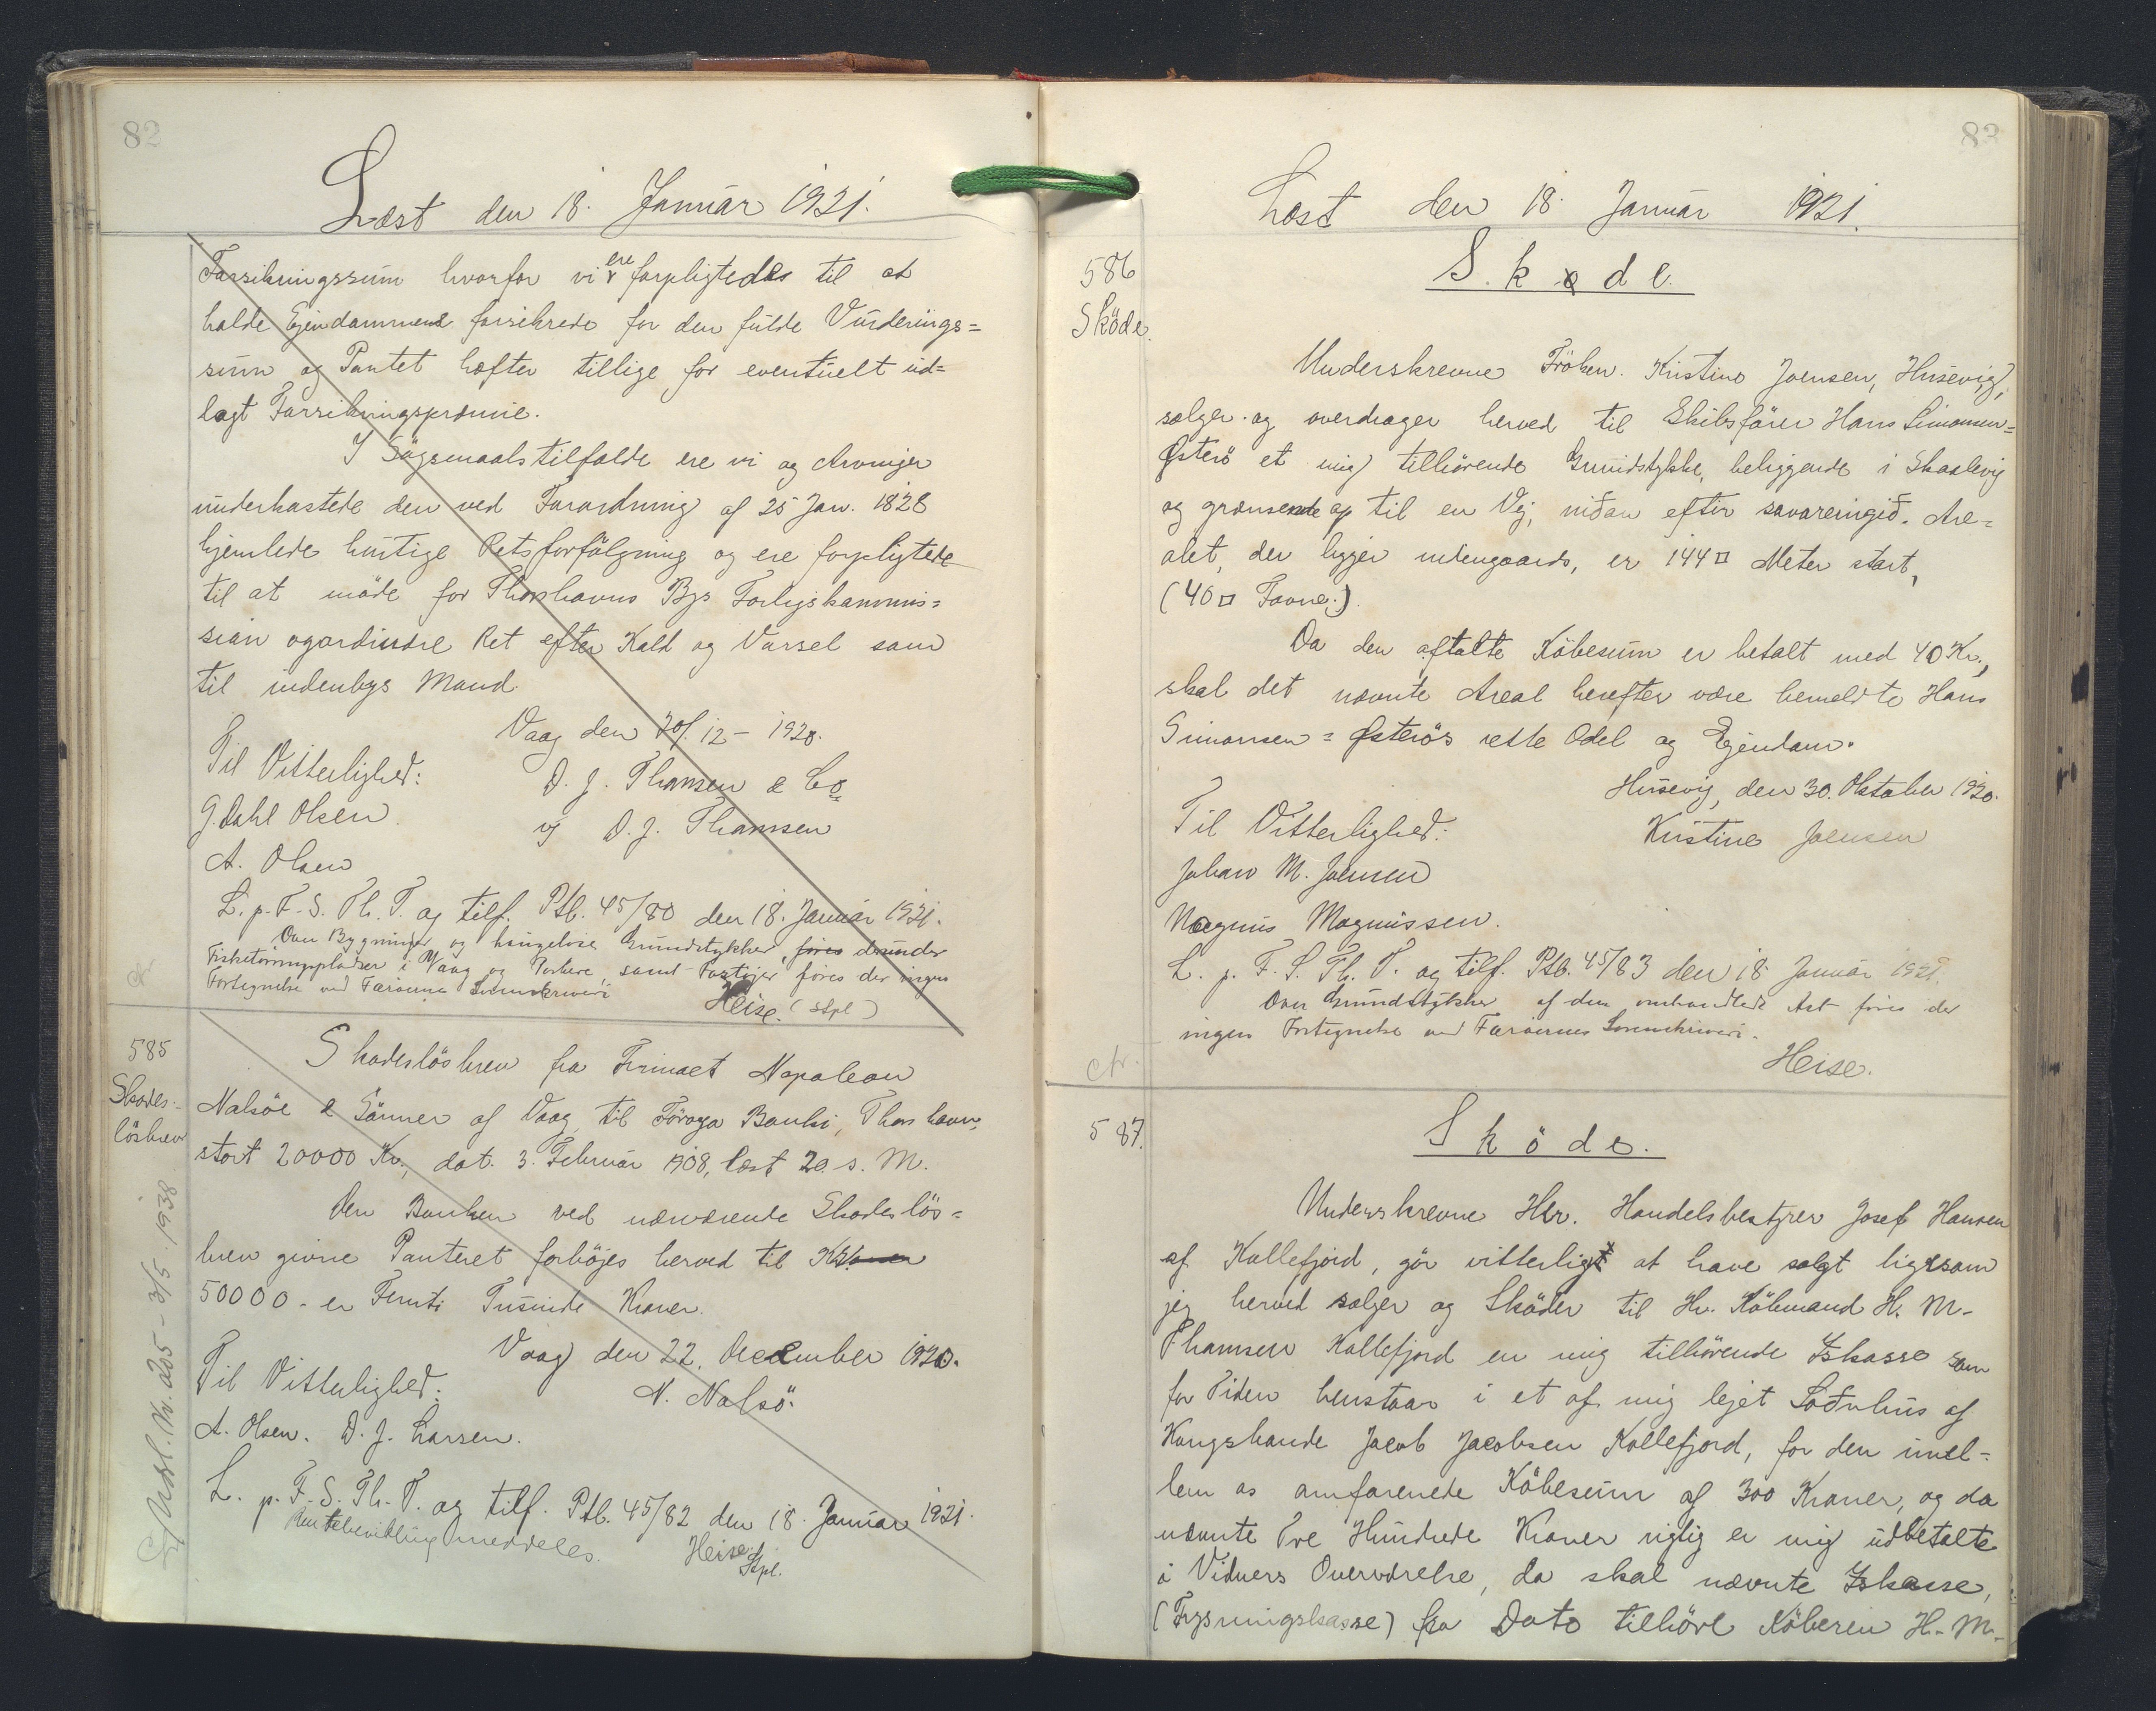 82
Læst den 18. Januar 1921.
Forsikringssum hvorfor vi ere forpligtede til at
holde Ejendommene forsikrede for den fulde Vurderings=
sum og Pantet hæfter tillige for eventuelt ud=
lagt Forsikringspræmie.
I Sögsmaalstilfælde ere vi og Arvinger
underkastede den ved Forordning af 25 Jan. 1828
hjemlede hurtige Retsforfölgning og ere forpligtede
til at möde for Thorshavns Bys Forligskommis=
sion og ordinære Ret efter Kald og Varsel som
til indenbys Mand.
Vaag den 20/12 - 1920.
Til Vitterlighed:
D. J. Thomsen & Co
G. Dahl Olsen
v/ D. J. Thomsen
A. Olsen
L. p. F. S. Th. T. og tilf. Ptb. 45/80 den 18. Januar 1921.
Over Bygninger og huuzelöse Grundstykker, föres derunder
Fisketörringspladser i Vaag og Porkere samt Fartöjer föres der ingen
Fortegnelse ved Færöernes Sorenskriveri
Heise. (Stpl)
585
Skades-
lösbrev
Skadeslösbrev fra Firmaet Napoleon
Nolsöe & Sönner af Vaag, til Föroya Banki, Thorshavn,
stort 20000 Kr., dat. 3. Februar 1908, læst 20. s. M.
Den Banken ved nærværende Skadeslös=
brev givne Panteret forhöjes herved til Kroner
50000 - er Femti Tusinde Kroner.
Vaag den 22. December 1920.
Til Vitterlighed:
N. Nolsö.
A. Olsen. D. J. Larsen.
L. p. F. S. Th. T. og tilf. Ptb. 45/82 den 18. Januar 1921.
meddeles.
Heise. Stpl.
Udsl. Nr. 205 - 3/5. 1938
83
Læst den 18. Januar 1921.
586
Sköde.
Sköde.
Underskrevne Fröken. Kristine Joensen, Husevig,
sælger og overdrager herved til Skibsförer Hans Simonsen=
Österö et mig tilhörende Grundstykke, beliggende i Skaalevig
og grænsende op til en Vej, niðan eftir savareingið. Are=
alet, der ligger indengaards, er 144 □ Meter stort,
(40 □ Favne.)
Da den aftalte Köbesum er betalt med 40 Kr.,
skal det nævnte Areal herefter være bemeldte Hans
Simonsen = Österös rette Odel og Ejendom.
Husevig, den 30. Oktober 1920.
Til Vitterlighed:
Kristine Joensen
Johan M. Joensen
Magnus Magnussen.
L. p. F. S. Th. T. og tilf. Ptb. 45/83 den 18 Januar 1921.
Over Grundstykker af den omhandlede Art föres der
ingen Fortegnelse ved Færöernes Sorenskriveri.
Heise.
587.
Sköde.
Underskrevne Hr. Handelsbestyrer Josef Hansen
af Kollefjord, gör vitterligt at have solgt ligesom
jeg herved sælger og Sköder til Hr. Köbmand H. M.
Thomsen Kollefjord en mig tilhörende Iskasse som
for Tiden henstaar i et af mig lejet Soðuhus af
Kongsbonde Jacob Jacobsen Kollefjord, for den imel=
lem os omforenede Köbesum af 300 Kroner, og da
nævnte Tre Hundrede Kroner rigtig er mig udbetalte
i Vidners Overværelse, da skal nævnte Iskasse,
(Frysningskasse) fra Dato tilhöre Köberen H. M.